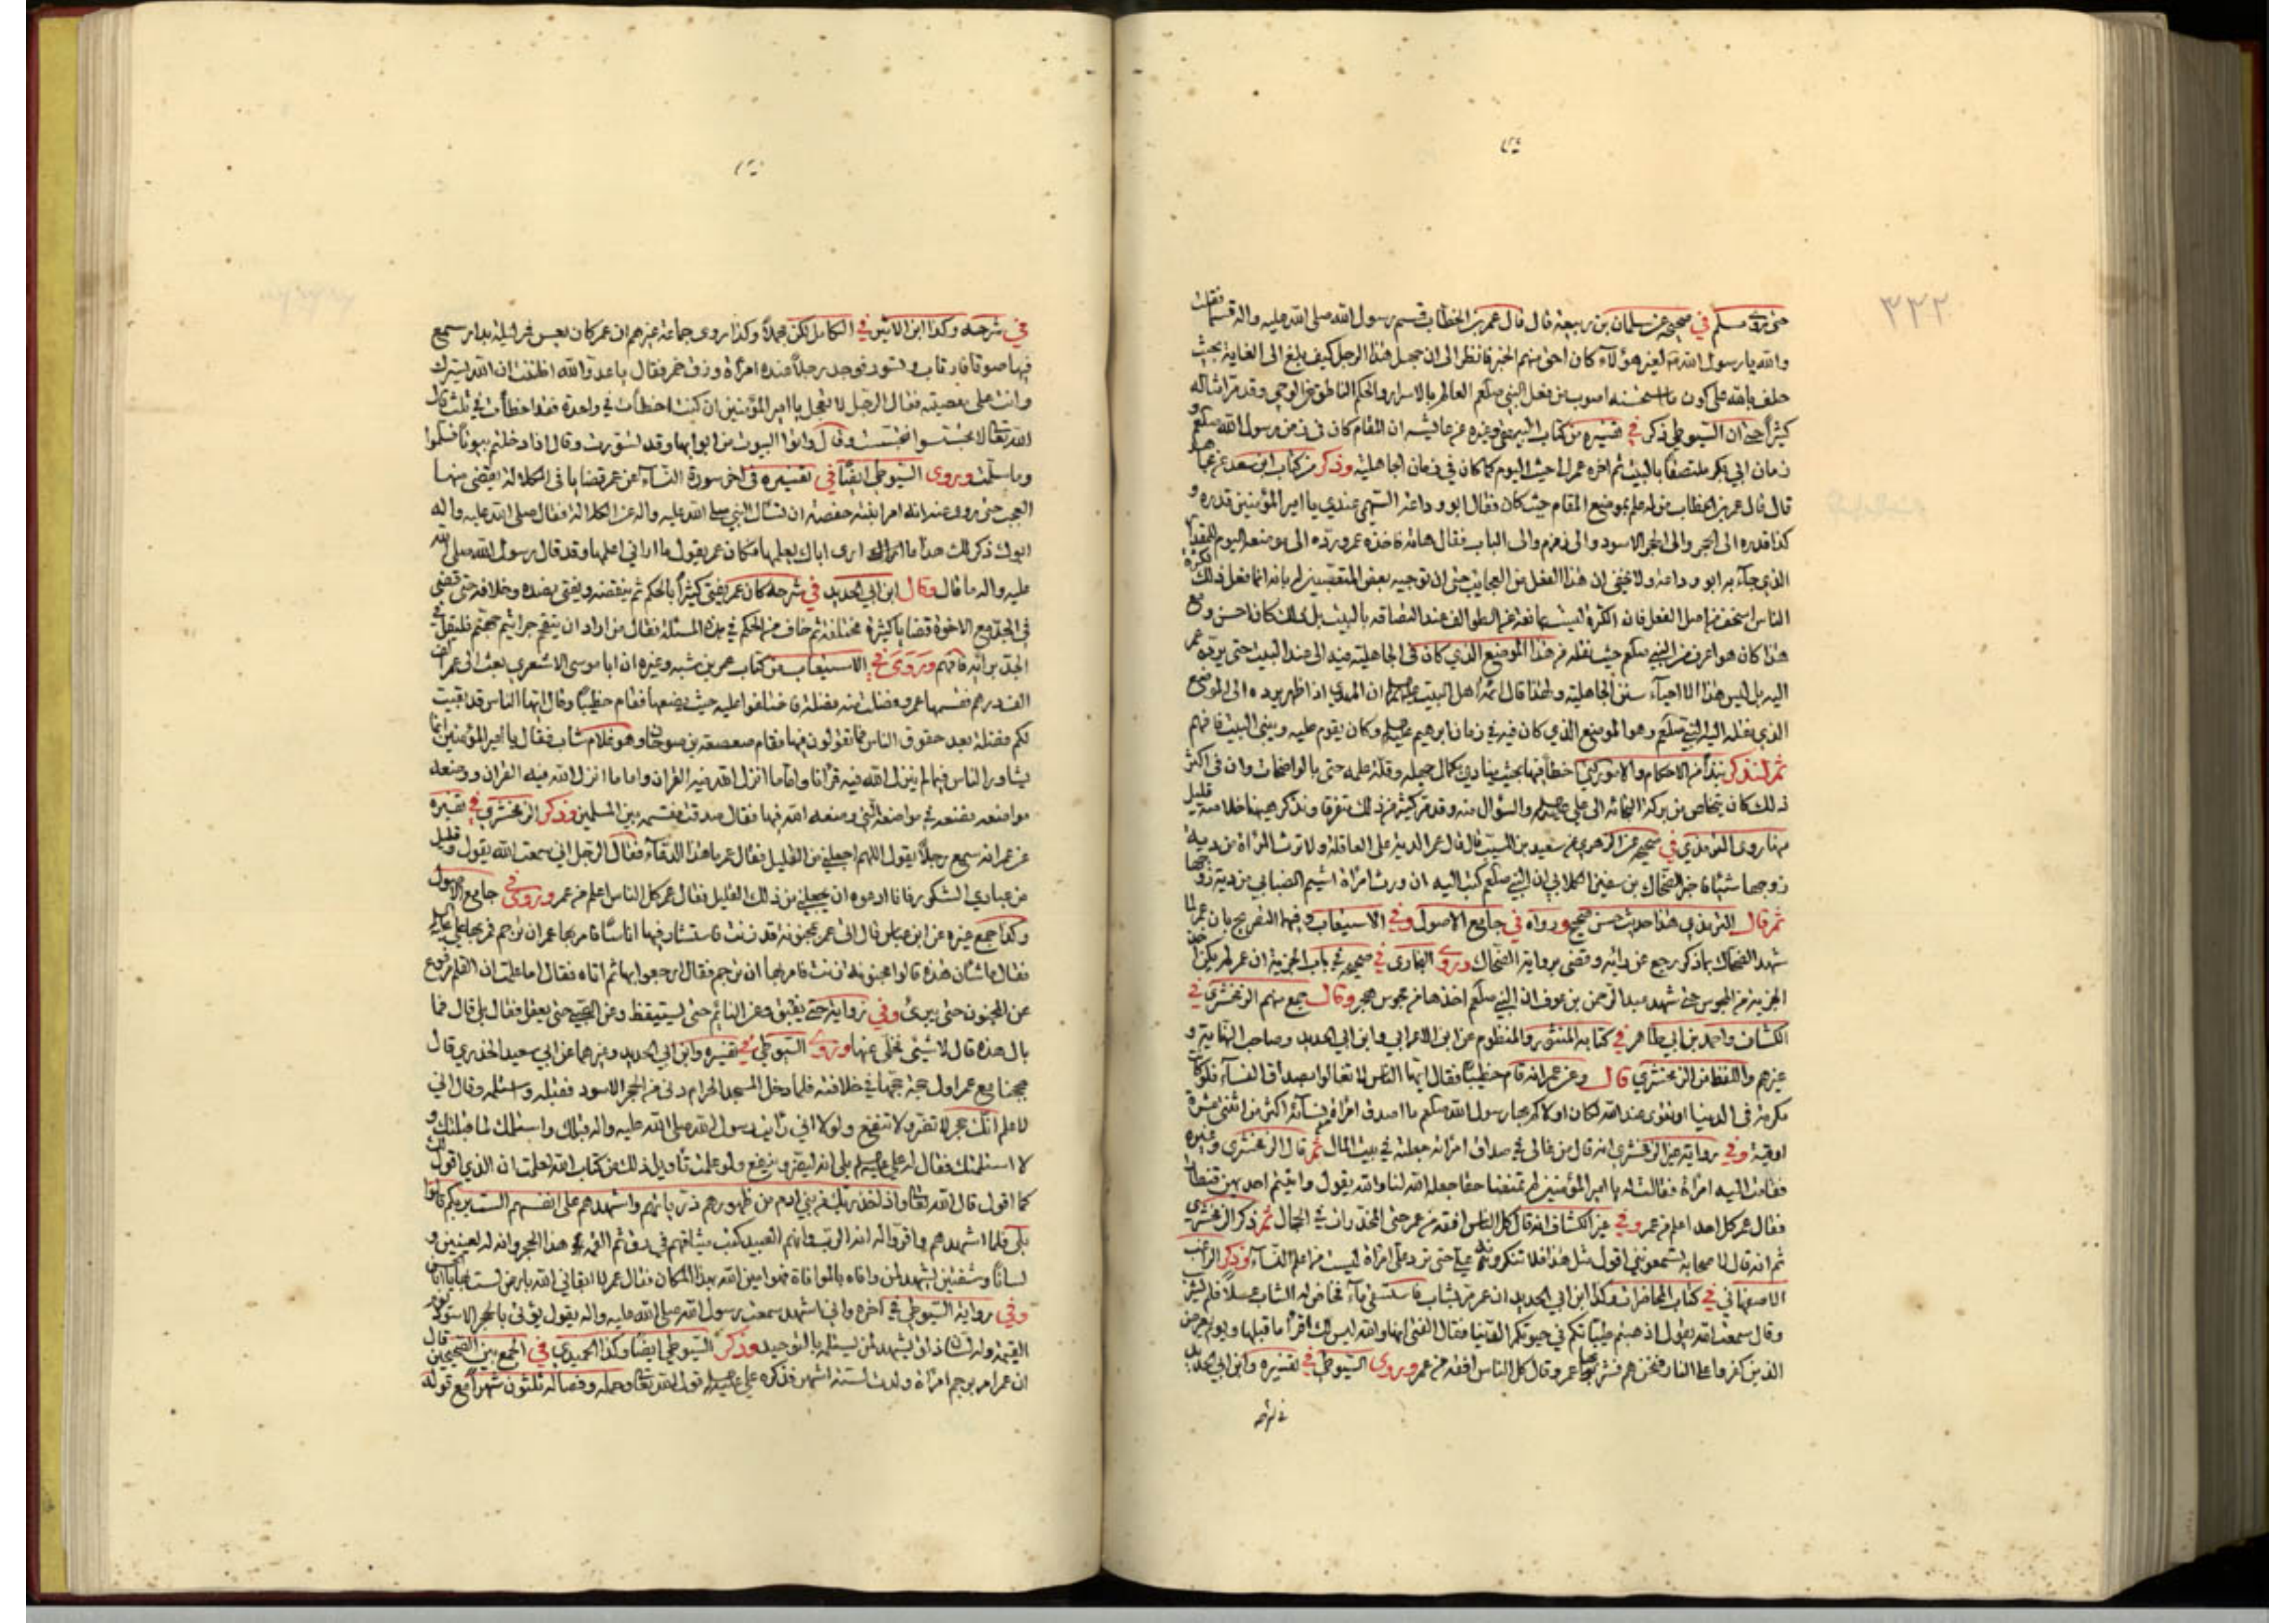 ٣٣٢
حتى روى مسلم في صحيحه عن سلمان بن ربيعة قال قال عمر بن الخطاب قسم رسول الله صلى الله عليه واله قسما فقلت
والله يا رسول الله لغير هؤلاء كان احق منهم الخبر فانظر الى ان جهل هذا الرجل كيف بلغ الى الغاية بحيث
حلف بالله على كون ما استحسنه اصوب من فعل النبي صلعم العالم بالاسرار والحكم الناطق عن الوحي وقد مر امثاله
كثيرا حتى ان السيوطي ذكر في تفسيره من كتاب البيهقي وغيره عن عايشه ان المقام كان في زمن رسول الله صلعم و
زمان ابي بكر ملتصقا بالبيت ثم اخره عمر الى حيث اليوم كما كان في زمان الجاهلية وذكر من كتاب ابن سعد عن مجاهد
قال قال عمر بن الخطاب من له علم بموضع المقام حيث كان فقال ابو وداعة السهمي عندي يا امير المؤمنين قدرته و
كذا قدره الى الحجر والى الحجر الاسود والى زمزم والى الباب فقال هاته فاخذه عمر ورده الى موضعه اليوم للمقدار
الذي جاء به ابو وداعة ولا يخفى ان هذا الفعل من العجايب حتى ان توجيه بعض المتعصبين له بانه انما فعل ذلك لكثرة
الناس اسخف من اصل الفعل فان الكثرة ليست مانعة عن الطواف عند التصاقه بالبيت بل ذلك كان احسن ومع
هذا كان هو اعرف من النبي صلعم حيث نقله من هذا الموضع الذي كان في الجاهلية فيه الى عند البيت حتى يرده عمر
اليه بل ليس هذا الا احياء سنن الجاهلية ولهذا قال ائمة اهل البيت عليهم السلام ان المهدي اذا ظهر يرده الى الموضع
الذي نقله اليه النبي صلعم وهو الموضع الذي كان فيه في زمان ابرهيم وكان يقوم عليه ويبني البيت فافهم
ثم لنذكر نبذا من الاحكام والامور التي اخطأ فيها بحيث ينادي بكمال جهله وقلة علمه حتى بالواضحات وان في اكثر
ذلك كان يتخلص من بركة التجائه الى علي والسؤال منه وقد مر كثير من ذلك متفرقا ونذكر هيهنا خلاصة قليل
منها روى الترمذي في صحيحه عن الزهري عن سعيد بن المسيب قال قال عمر الدية على العاقلة ولا ترث المرأة من دية
زوجها شيئا فاخبره الضحاك بن سفين الكلابي ان النبي صلعم كتب اليه ان ورث امرأة اشيم الضبابي من دية زوجها
ثم قال الترمذي هذا حديث حسن صحيح ورواه في جامع الاصول وفي الاستيعاب وفيها التصريح بان عمر لما
شهد الضحاك بما ذكر رجع عن رائه وقضى برواية الضحاك وروى البخاري في صحيحه في باب الجزية ان عمر لم يكن اخذ
الجزية من المجوس حتى شهد عبد الرحمن بن عوف ان النبي صلعم اخذها من مجوس هجر وقال جمع منهم الزمخشري في
الكشاف واحمد بن ابي طاهر في كتابه المنثور والمنظوم عن ابن الاعرابي وابن ابي الحديد وصاحب النهاية و
غيرهم واللفظ من الزمخشري قال وعن عمر انه قام خطيبا فقال ايها الناس لا تغالوا بصداق النساء فلو كانت
مكرمة في الدنيا او تقوى عند الله لكان اولاكم بها رسول الله صلعم ما اصدق امرأة من نسائه اكثر من اثنتي عشرة
اوقية وفي رواية غير الزمخشري انه قال من غالى في صداق امرأته جعلته في بيت المال ثم قال الزمخشري وغيره
فقامت اليه امرأة فقالت له يا امير المؤمنين لم تمنعنا حقا جعله الله لنا والله يقول واتيتم احديهن قنطارا
فقال عمر كل احد اعلم من عمر وفي غير الكشاف انه قال كل الناس افقه من عمر حتى المخدرات في الحجال ثم ذكر الزمخشري
ثم انه قال لاصحابه تسمعونني اقول مثل هذا فلا تنكرونه علي حتى ترد علي امرأة ليست من اعلم النساء وذكر الراغب
الاصفهاني في كتاب المحاضرات وكذا ابن ابي الحديد ان عمر مر بشاب فاستسقى ماء فخاض له الشاب عسلا فلم يشربه
وقال سمعت الله يقول اذهبتم طيباتكم في حيوتكم الدنيا فقال الفتى انها والله ليس لك اقرأ ما قبلها ويوم يعرض
الذين كفروا على النار فنحن هم فشربها عمر وقال كل الناس افقه من عمر وروى السيوطي في تفسيره وابن ابي الحديد
في شرحه
في شرحه وكذا ابن الاثير في الكامل لكن مجملا وكذا روى جماعة غيرهم ان عمر كان يعس في ليلة بدار سمع
فيها صوتا فارتاب وتسور فوجد رجلا عنده امرأة وزق خمر فقال يا عدو الله اظننت ان الله يسترك
وانت على معصيته فقال الرجل لا تعجل يا امير المؤمنين ان كنت اخطأت في واحدة فقد اخطأت في ثلث قال
الله تعالى لا تجسسوا وتجسست وقال وأتوا البيوت من ابوابها وقد تسورت وقال اذا دخلتم بيوتا فسلموا
وما سلمت وروى السيوطي ايضا في تفسيره في اخر سورة النساء عن عمر قضايا في الكلالة يقضى منها
العجب حتى روى عنه انه امر ابنته حفصة ان تسأل النبي صلى الله عليه واله عن الكلالة فقال صلى الله عليه واله
ابوك ذكر لك هذا ما ارى اباك يعلمها فكان عمر يقول ما اراني اعلمها وقد قال رسول الله صلى الله
عليه واله ما قال وقال ابن ابي الحديد في شرحه كان عمر يفتي كثيرا بالحكم ثم ينقضه ويفتي بضده وخلافه حتى قضى
في الجد مع الاخوة قضايا كثيرة مختلفة ثم خاف من الحكم في هذه المسئلة فقال من اراد ان يتقحم جراثيم جهنم فليقل في
الجد برأيه فافهم وروى في الاستيعاب من كتاب عمر بن شبه وغيره ان ابا موسى الاشعري بعث الى عمر الف
الف درهم فقسمها عمر وفضلت منه فضلة فاختلفوا عليه حيث يضعها فقام خطيبا وقال ايها الناس قد بقيت
لكم فضلة بعد حقوق الناس فما تقولون فيها فقام صعصعة بن صوحان وهو غلام شاب فقال يا امير المؤمنين انما
يشاور الناس فيما لم ينزل الله فيه قرآنا واما ما انزل الله فيه القرآن ووضعه
مواضعه فضعه في مواضعه التي وضعه الله فيها فقال صدقت فقسمه بين المسلمين وذكر الزمخشري في تفسيره
عن عمر انه سمع رجلا يقول اللهم اجعلني من القليل فقال عمر ما هذا الدعاء فقال الرجل اني سمعت الله يقول وقليل
من عبادي الشكور فانا ادعوه ان يجعلني من ذلك القليل فقال عمر كل الناس اعلم من عمر وروى في جامع الاصول
وكذا جمع غيره عن ابن عباس قال اتى عمر بمجنونة قد زنت فاستشار فيها اناسا فامر بها عمر ان ترجم فمر بها علي
فقال ما شأن هذه قالوا مجنونة زنت فامر بها ان ترجم فقال ارجعوا بها ثم اتاه فقال اما علمت ان القلم مرفوع
عن المجنون حتى يبرئ وفي رواية حتى يفيق وعن النائم حتى يستيقظ وعن الصبي حتى يعقل فقال بلى قال فما
بال هذه قال لا شيئ فخلى عنها وروى السيوطي في تفسيره وابن ابي الحديد وغيرهما عن ابي سعيد الخدري قال
حججنا مع عمر اول حجة حجها في خلافته فلما دخل المسجد الحرام دنى من الحجر الاسود فقبله واستلمه وقال اني
لاعلم انك حجر لا تضر ولا تنفع ولولا اني رأيت رسول الله صلى الله عليه واله قبلك واستلمك لما قبلتك و
لا استلمتك فقال له علي بلى انه ليضر وينفع ولو علمت تأويل ذلك من كتاب الله لعلمت ان الذي اقول لك
كما اقول قال الله تعالى واذ اخذ ربك من بني ادم من ظهورهم ذرياتهم واشهدهم على انفسهم الست بربكم قالوا
بلى فلما اشهدهم واقروا له انه الرب وانهم العبيد كتب ميثاقهم في رق ثم القمه هذا الحجر وانه له لعينين و
لسانا وشفتين يشهد لمن وافاه بالموافاة فهو امين الله بهذا المكان فقال عمر لا ابقاني الله بارض لست بها يا ابا الحسن
وفي رواية السيوطي في اخره واني اشهد سمعت رسول الله صلى الله عليه واله يقول يؤتى بالحجر الاسود يوم
القيمة وله لسان ذلق يشهد لمن يستلمه بالتوحيد وذكر السيوطي ايضا وكذا الحميدي في الجمع بين الصحيحين قال
ان عمر امر برجم امرأة ولدت لستة اشهر فذكره علي قول الله تعالى وحمله وفصاله ثلثون شهرا مع قوله